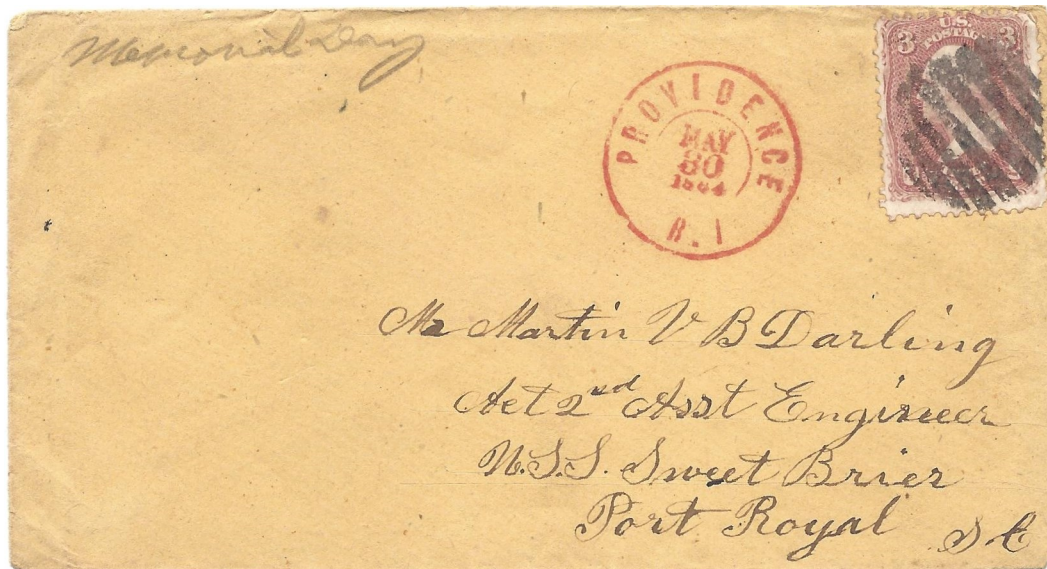 Memorial Day
PROVIDENCE
MAY
30
1864
R.I
U.S.
POSTAG
3 3
Mr Martin V B Darling
Act 2nd Asst Engineer
U.S.S. Sweet Brier
Port Royal S C